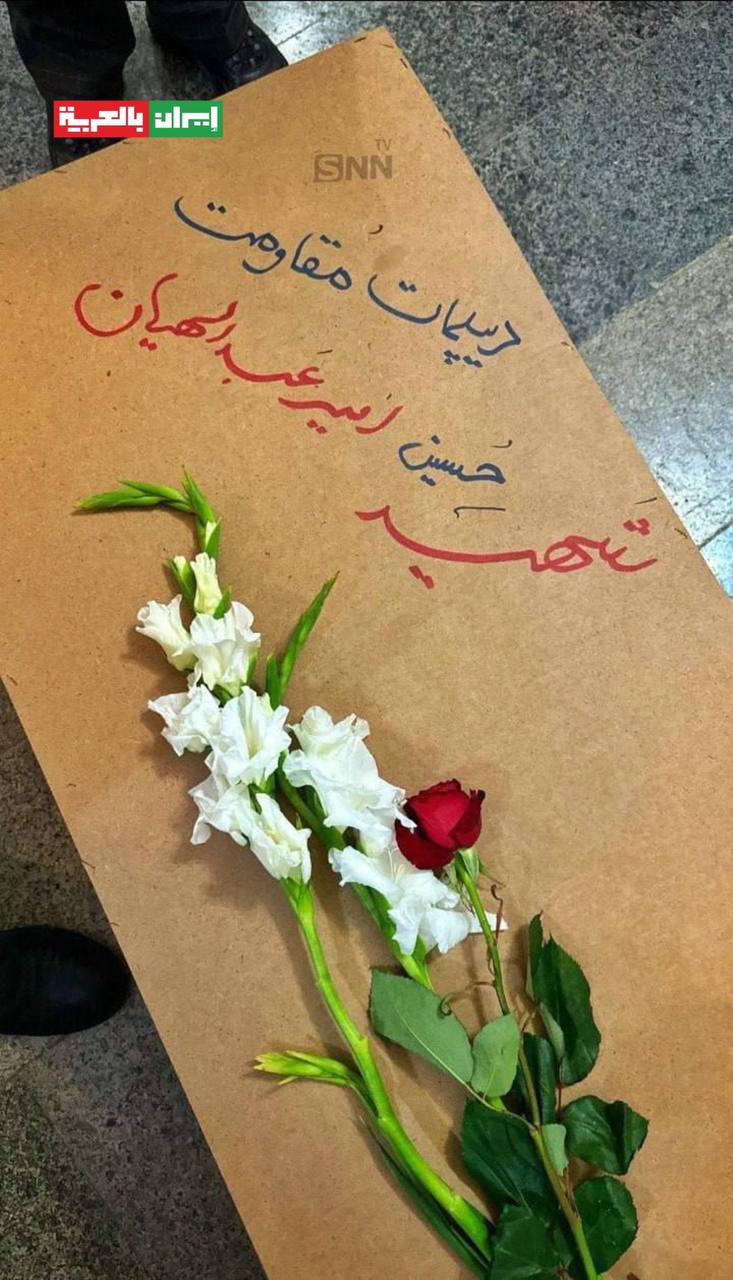 إيران بالعربية
SNN TV
دیپلمات مُقاومت
حُسین امیرعَبدالهیان
شَهید